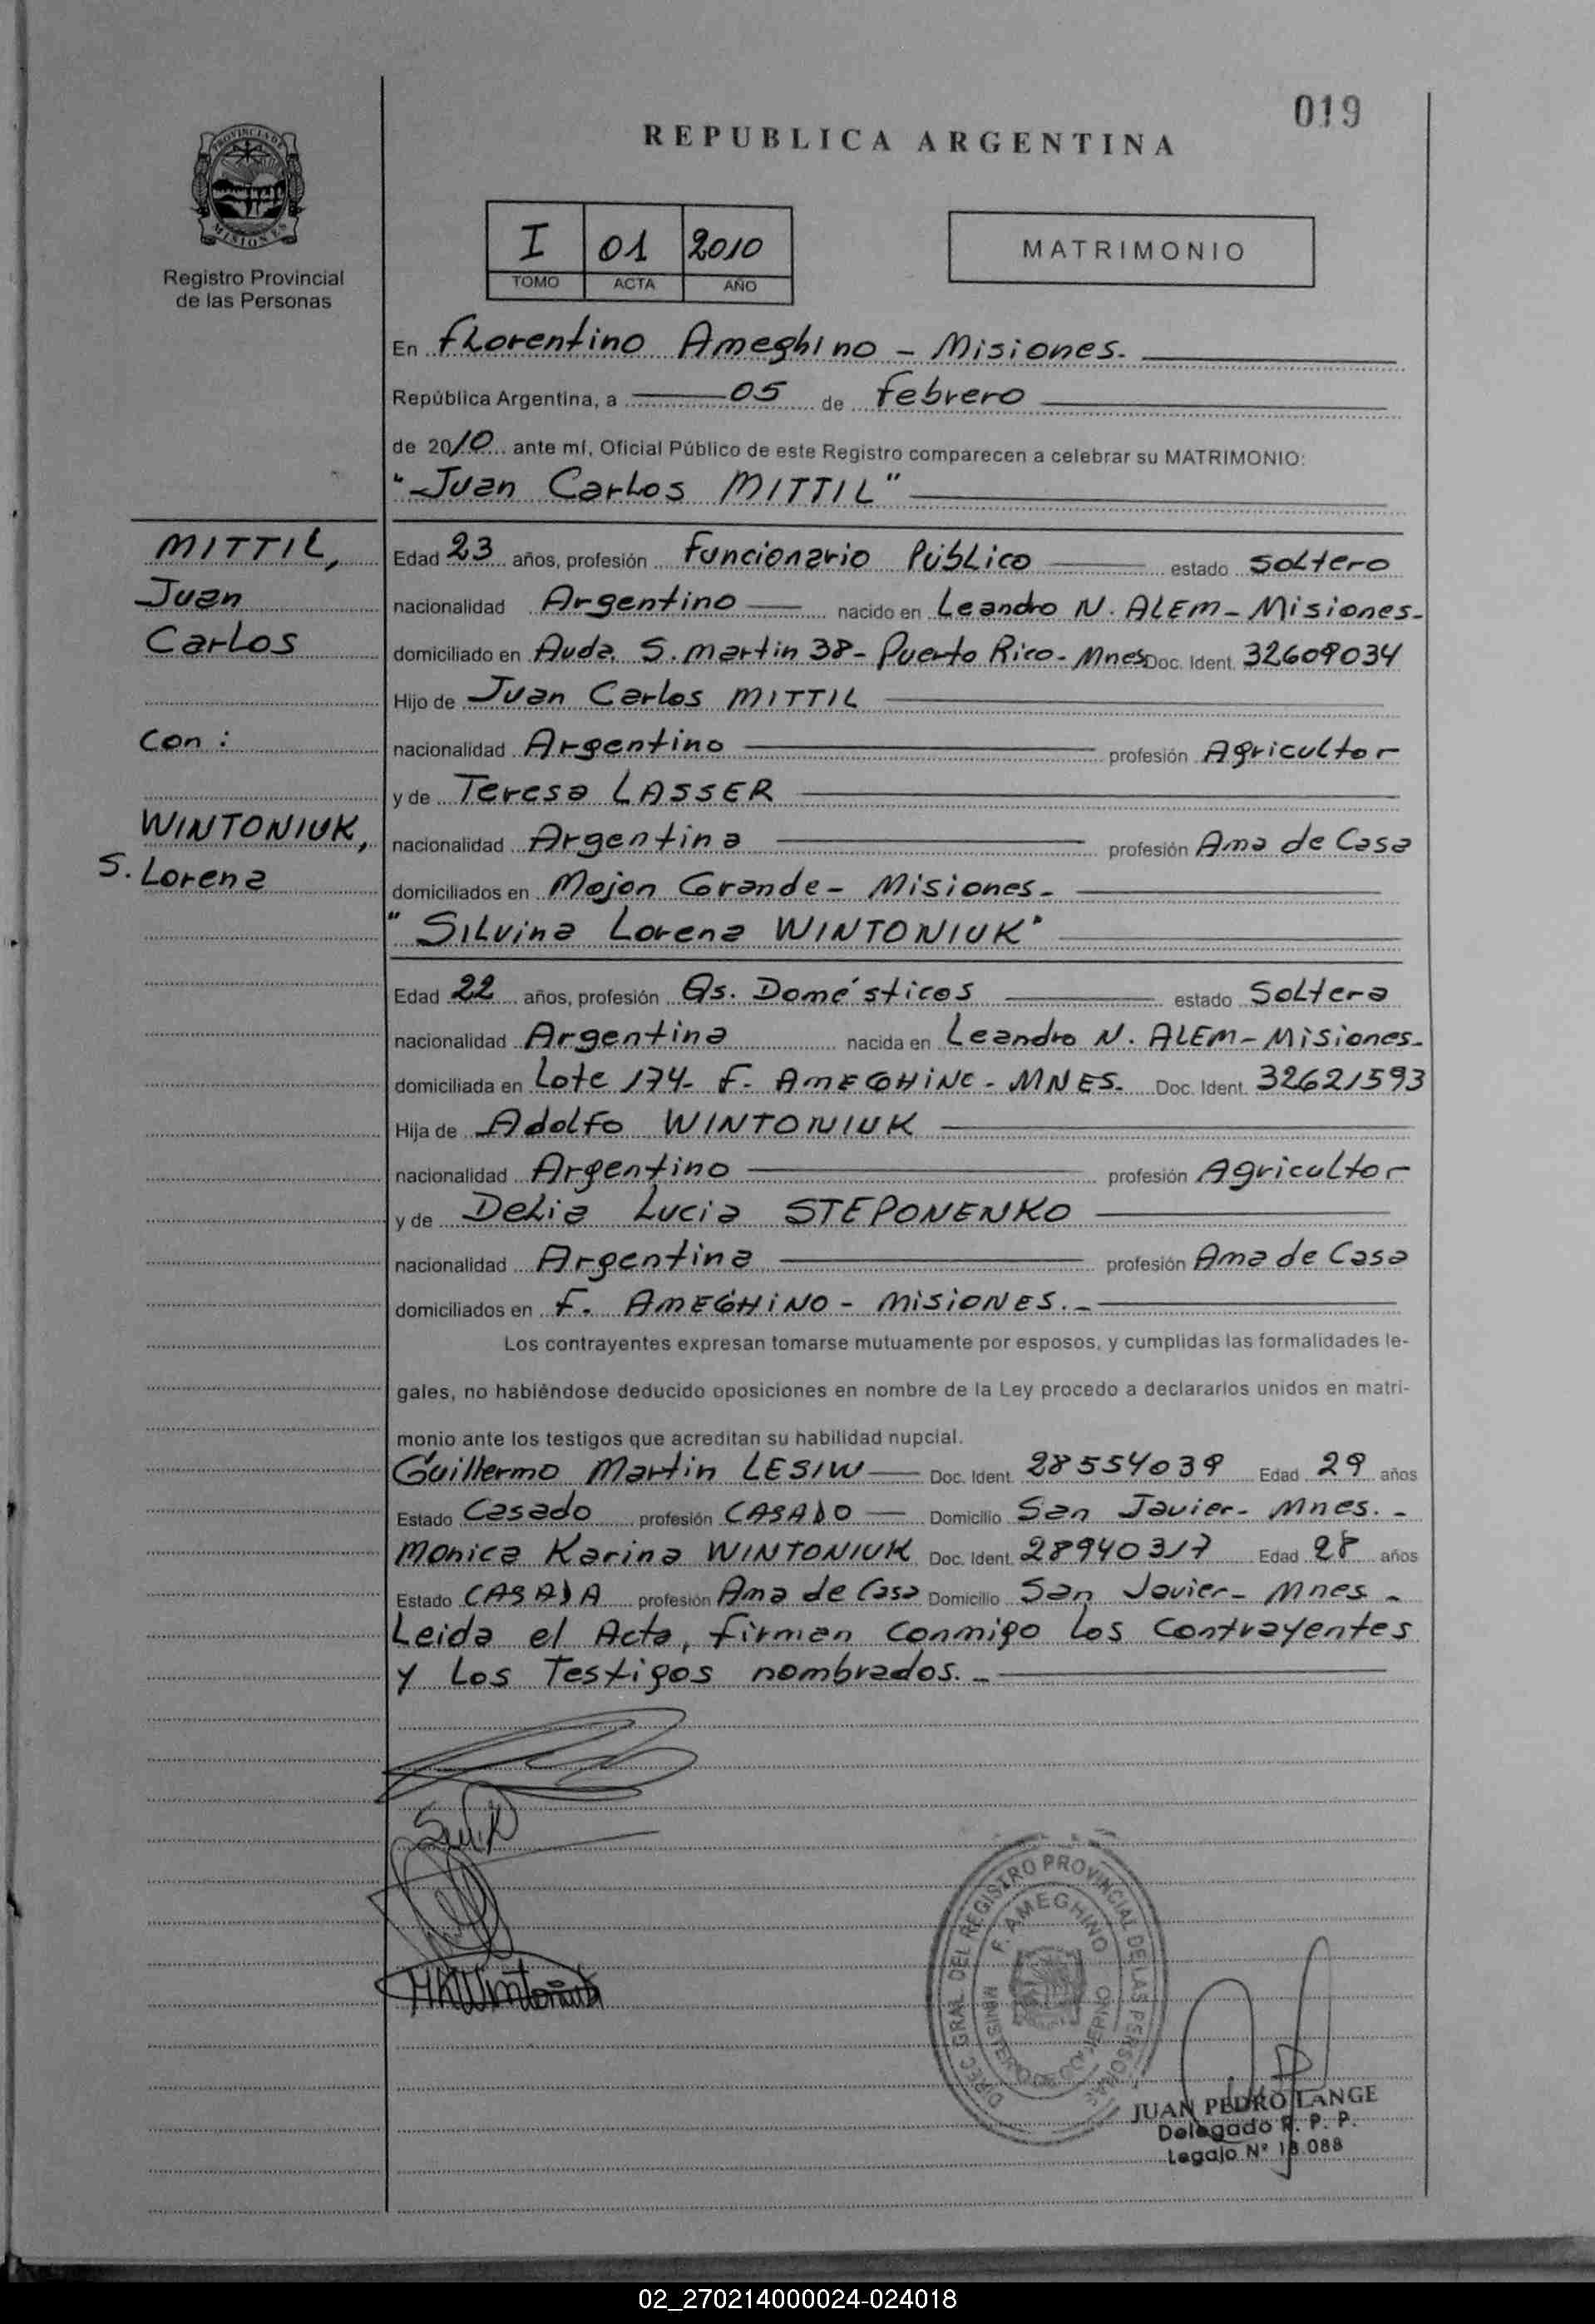 019
REPUBLICA ARGENTINA
PROVINCIA DE
MISIONES
Registro Provincial
de las Personas
I 01 2010
TOMO ACTA AÑO
MATRIMONIO
En Florentino Ameghino - Misiones.
República Argentina, a 05 de Febrero
de 2010 ante mí, Oficial Público de este Registro comparecen a celebrar su MATRIMONIO:
"Juan Carlos MITTIL"
MITTIL,
Juan
Carlos
Con:
WINTONIUK,
S. Lorena
Edad 23 años, profesión Funcionario Público estado Soltero
nacionalidad Argentino nacido en Leandro N. ALEM - Misiones.
domiciliado en Avda. S. Martin 38 - Puerto Rico - Mnes Doc. Ident. 32609034
Hijo de Juan Carlos MITTIL
nacionalidad Argentino profesión Agricultor
y de Teresa LASSER
nacionalidad Argentina profesión Ama de Casa
domiciliados en Mojon Grande - Misiones -
"Silvina Lorena WINTONIUK"
Edad 22 años, profesión Qs. Domésticos estado Soltera
nacionalidad Argentina nacida en Leandro N. ALEM - Misiones.
domiciliada en Lote 174 - F. AMEGHINO - MNES. Doc. Ident. 32621593
Hija de Adolfo WINTONIUK
nacionalidad Argentino profesión Agricultor
y de Delia Lucia STEPONENKO
nacionalidad Argentina profesión Ama de Casa
domiciliados en F. AMEGHINO - MISIONES. -
Los contrayentes expresan tomarse mutuamente por esposos, y cumplidas las formalidades le-
gales, no habiéndose deducido oposiciones en nombre de la Ley procedo a declararlos unidos en matri-
monio ante los testigos que acreditan su habilidad nupcial.
Guillermo Martin LESIW Doc. Ident. 28554039 Edad 29 años
Estado Casado profesión CASADO Domicilio San Javier - Mnes. -
Monica Karina WINTONIUK Doc. Ident. 28940317 Edad 28 años
Estado CASADA profesión Ama de Casa Domicilio San Javier - Mnes -
Leida el Acta, firman conmigo los contrayentes
y los Testigos nombrados. -
MKWintoniuk
DIREC. GRAL. DEL REGISTRO PROVINCIAL DE LAS PERSONAS
F. AMEGHINO
MINISTERIO DE GOBIERNO
JUAN PEDRO LANGE
Delegado R. P. P.
Legajo Nº 18.088
02_270214000024-024018